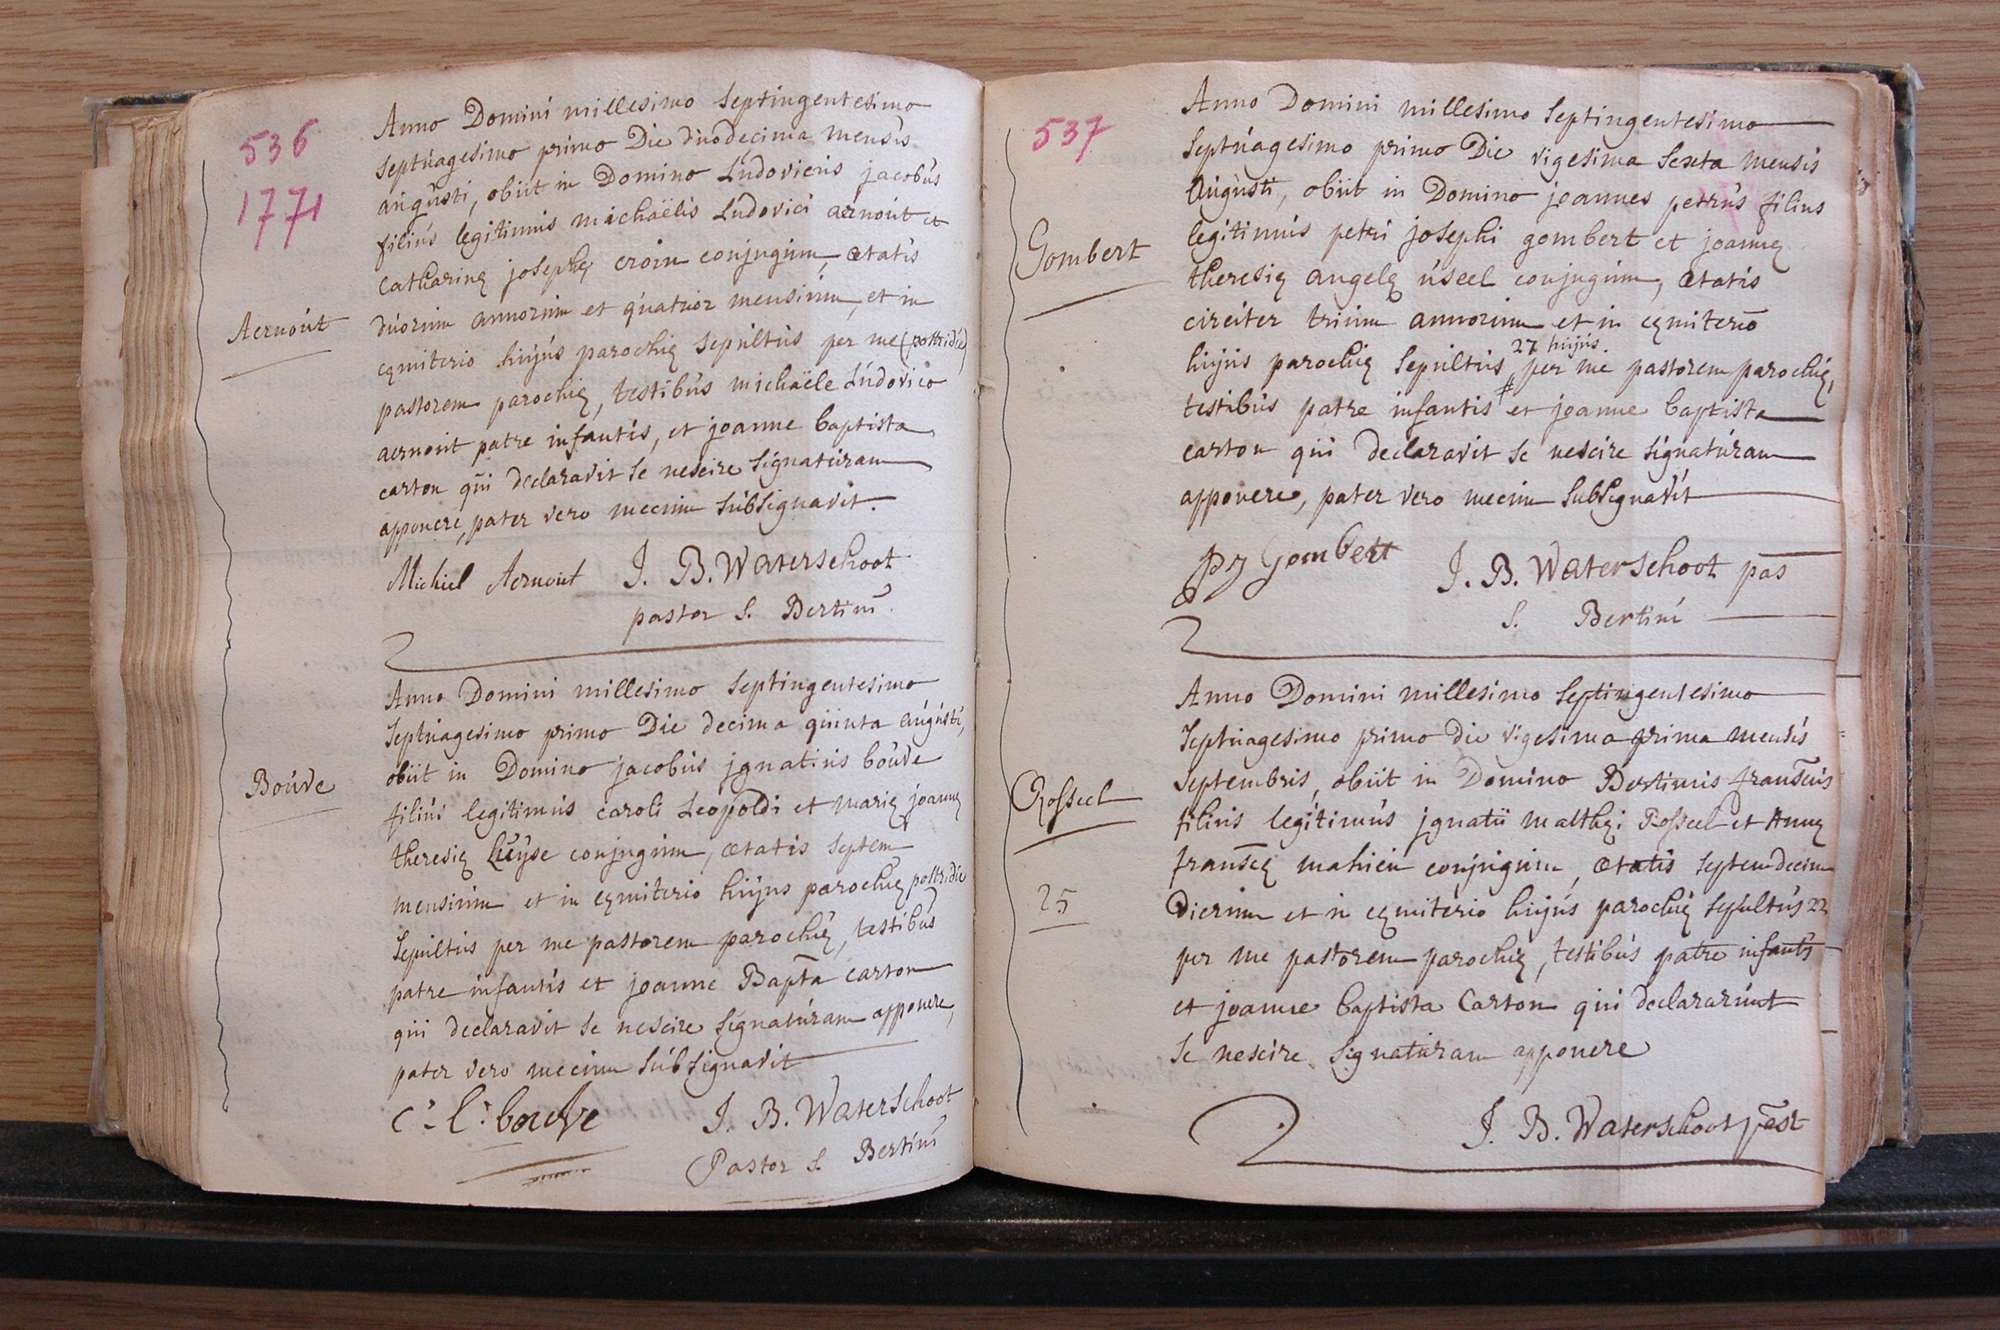 536
1771
Anno Domini millesimo septingentesimo
septuagesimo primo Die duodecima mensis
augusti, obiit in Domino Ludovicus jacobus
filius legitimus michaëlis Ludovici aernout et
catharinę josephę croin conjugum, ætatis
Aernout
duorum annorum et quatuor mensium, et in
cęmiterio hujus parochię sepultus per me (postridie)
pastorem parochię, testibus michaële Ludovico
aernout patre infantis, et joanne baptista
carton qui declaravit se nescire signaturam
apponere, pater vero mecum subsignavit.
Michiel Aernout J. B. Waterschoot
pastor S. Bertini
Anno Domini millesimo septingentesimo
septuagesimo primo Die decima quinta augusti,
obiit in Domino jacobus jgnatius bouve
Bouve
filius legitimus caroli Leopoldi et marię joannę
theresię Lueyse conjugum, ætatis septem
mensium et in cęmiterio hujus parochię postridie
sepultus per me pastorem parochię, testibus
patre infantis et joanne Bapta carton
qui declaravit se nescire signaturam apponere,
pater vero mecum subsignavit
C: l: bouve J. B. Waterschoot
Pastor S. Bertini
537
Anno Domini millesimo septingentesimo
septuagesimo primo Die vigesima sexta mensis
Augusti, obiit in Domino joannes petrus filius
Gombert
legitimus petri josephi gombert et joannę
theresię angelę useel conjugum, ætatis
circiter trium annorum et in cęmiterio
27 hujus
hujus parochię sepultus # per me pastorem parochię,
testibus patre infantis et joanne baptista
carton qui declaravit se nescire signaturam
apponere, pater vero mecum subsignavit
pj Gombert J. B. Waterschoot pas
S. Bertini
Anno Domini millesimo septingentesimo
septuagesimo primo die vigesima prima mensis
Septembris, obiit in Domino Bertinus francus
Rosseel
filius legitimus jgnatii matthęi Rosseel et Annę
francę mahieu conjugum, ætatis septemdecim
25
Dierum et in cęmiterio hujus parochię sepultus 22
per me pastorem parochię, testibus patre infantis
et joanne baptista Carton qui declararunt
se nescire signaturam apponere
J. B. Waterschoot past